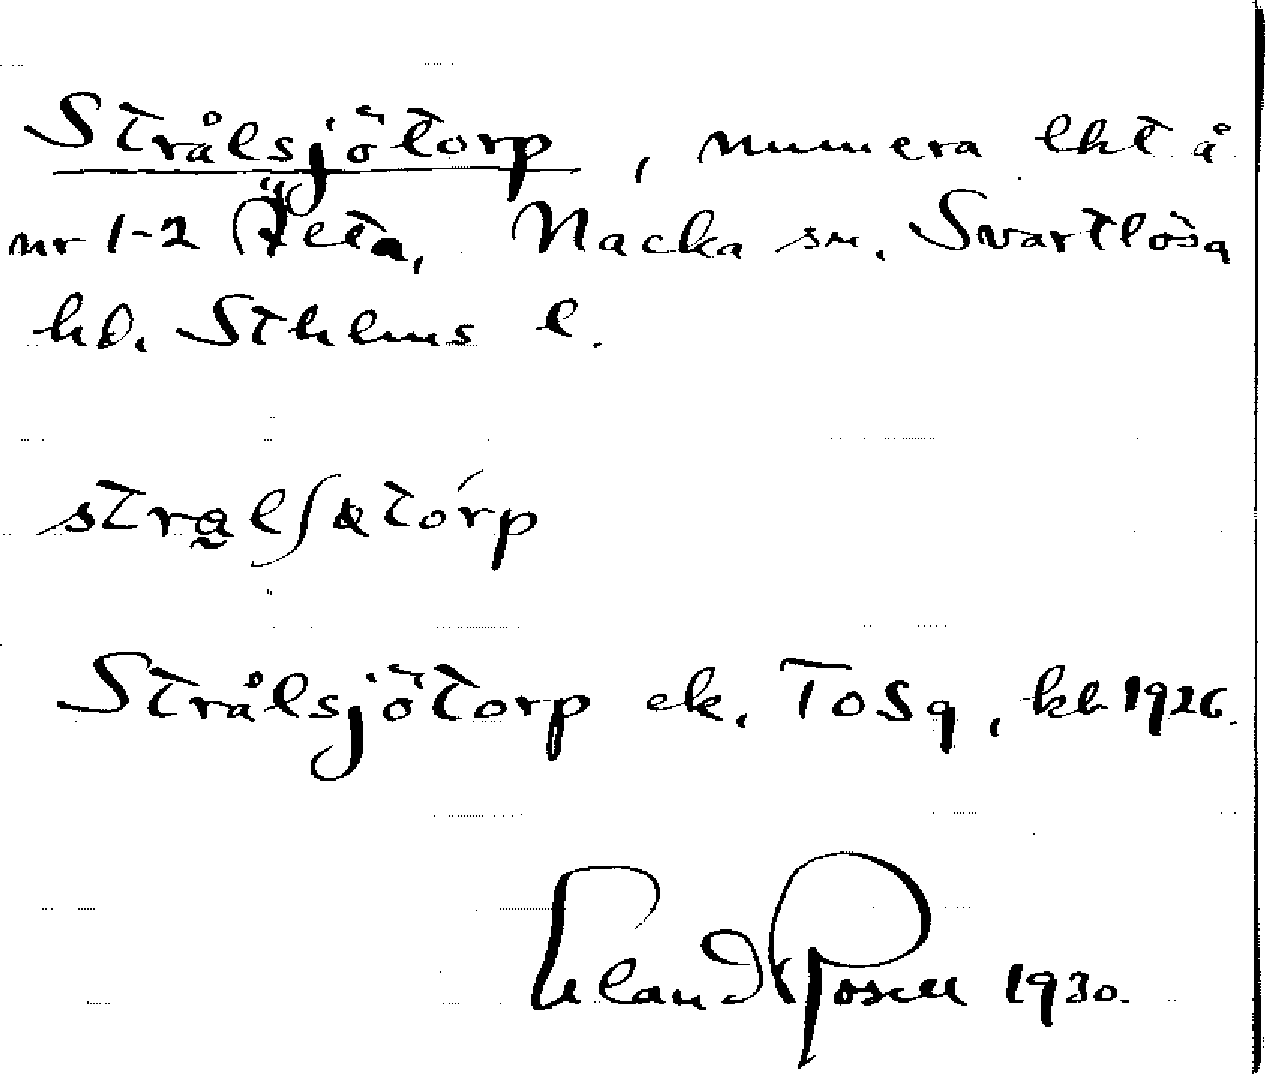 Strålsjötorp, numera lht å
nr 1-2 Älta, Nacka sn. Svartlösa
hd. Sthlms l.
Strålsjötorp ek. ToSq, kb 1926.
Erland Rosell 1930.